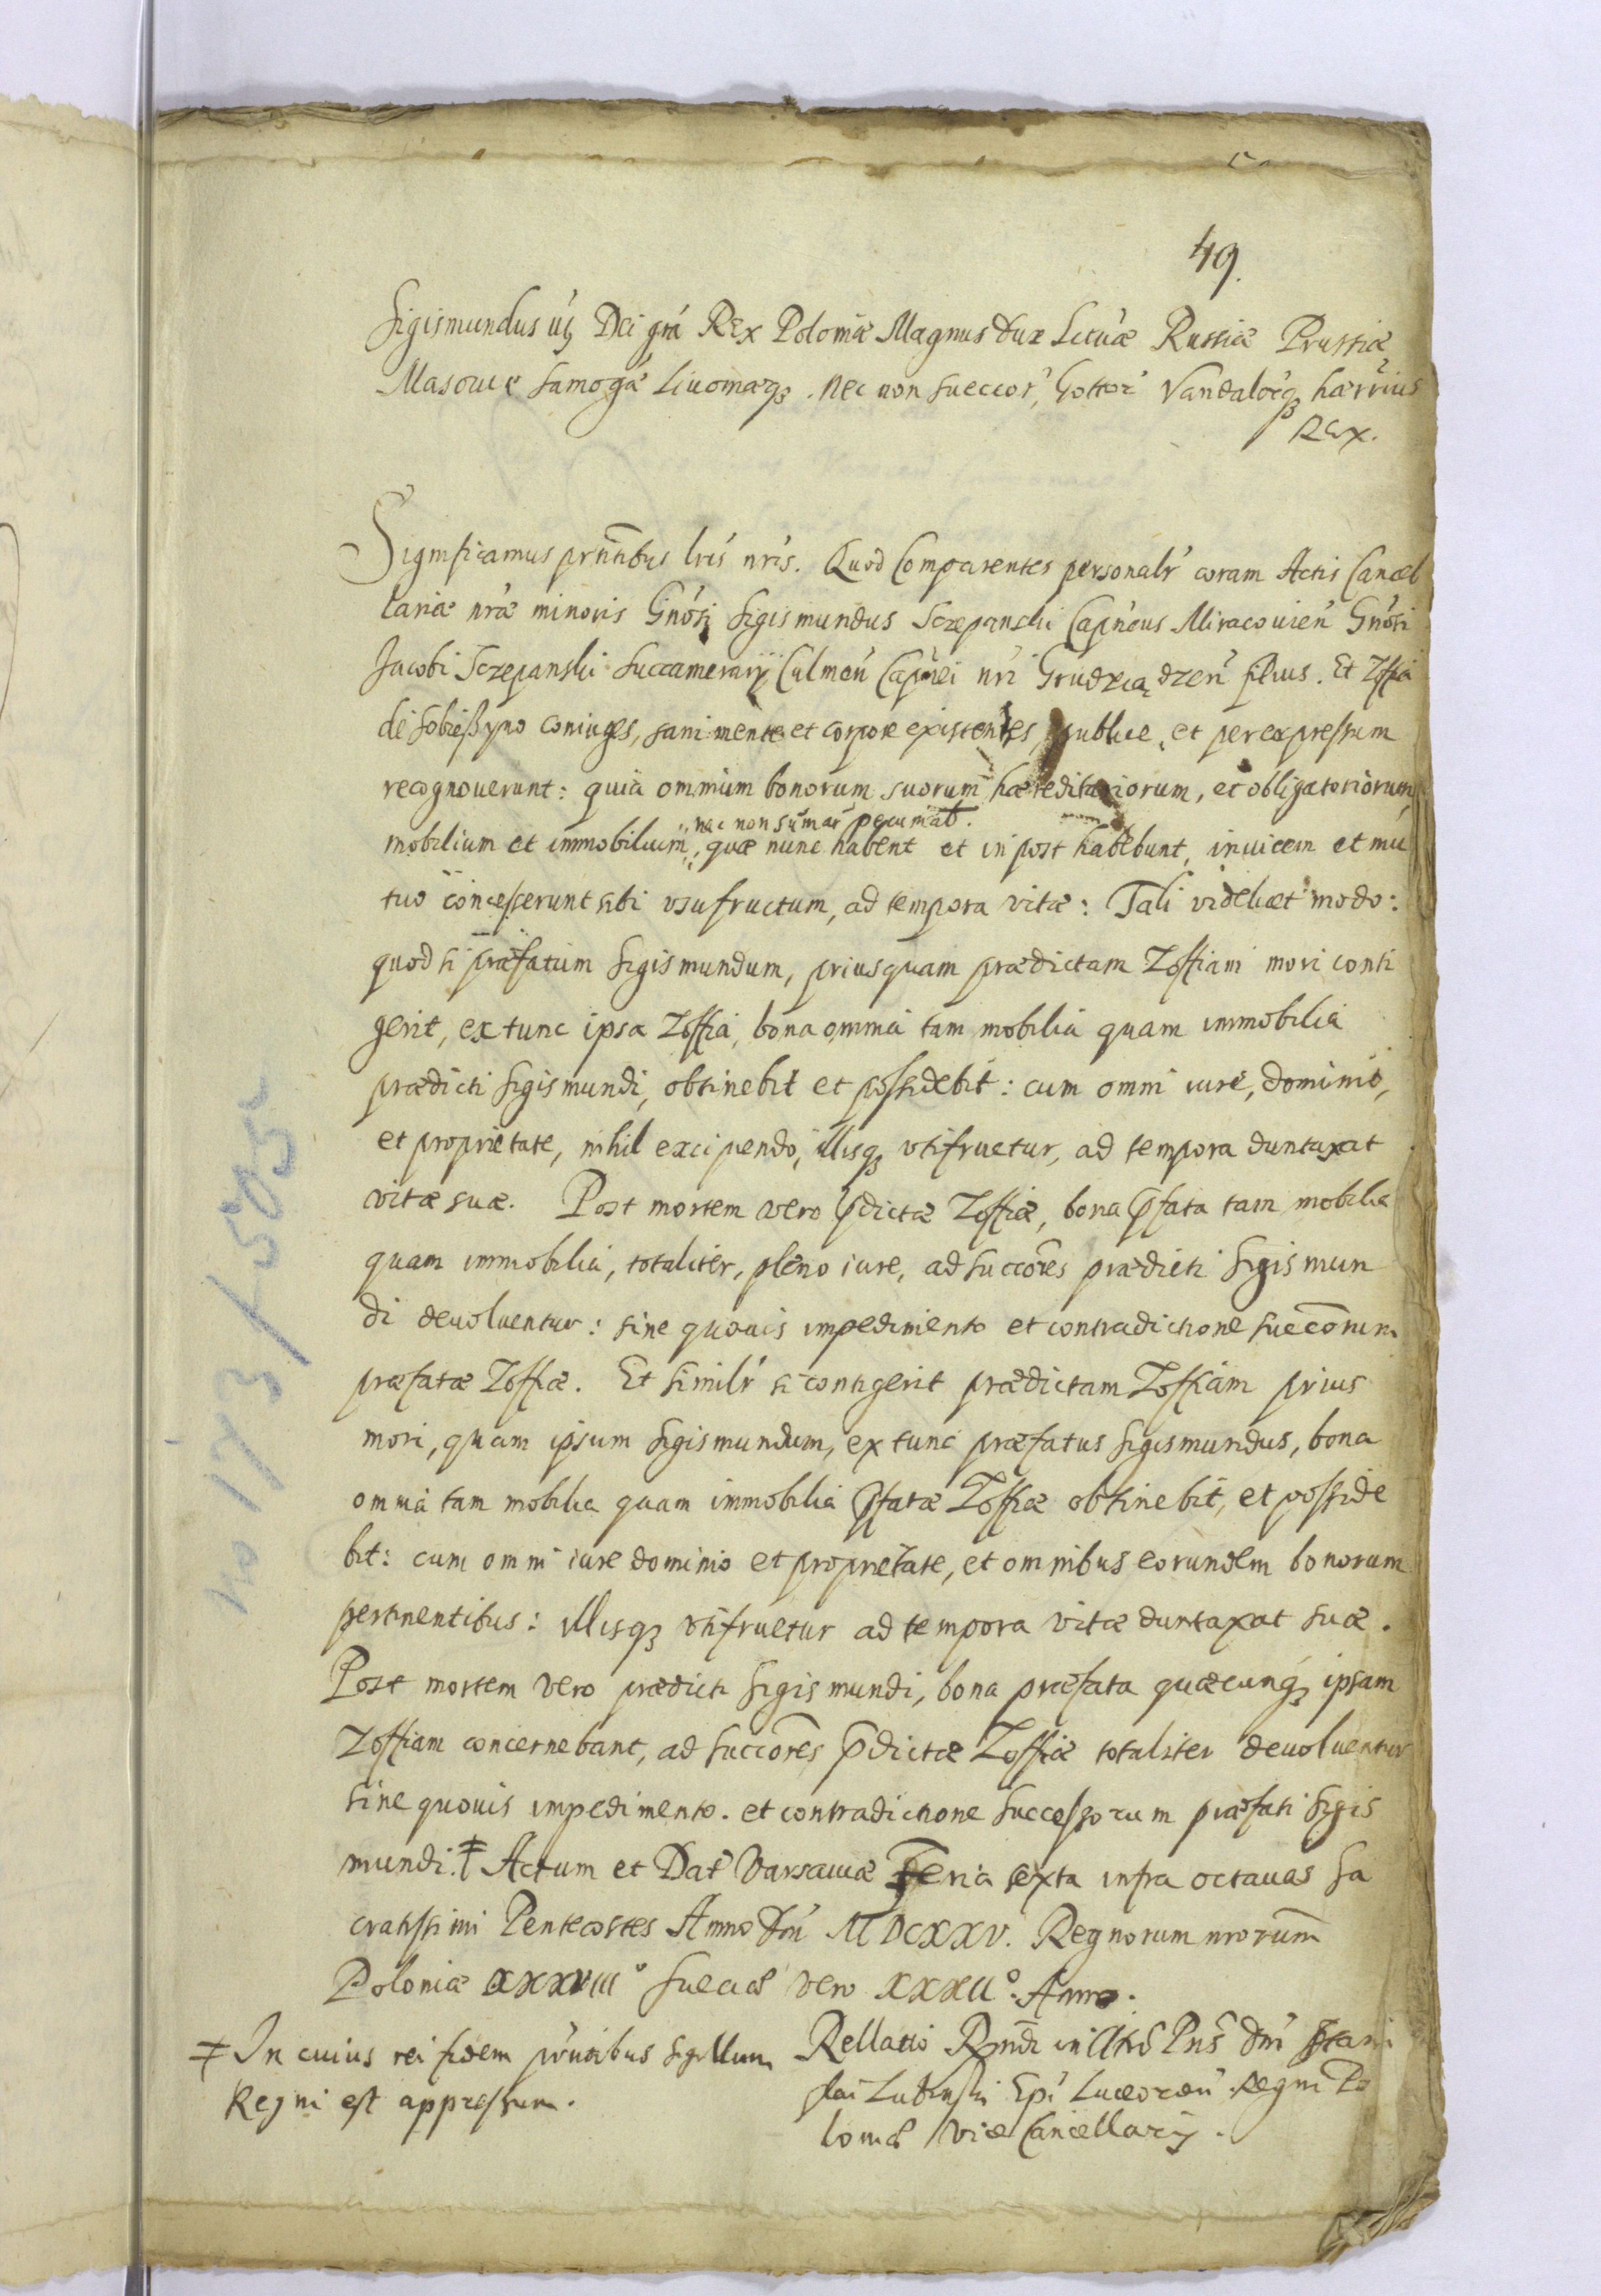 49.
Sigismundus iij Dei gra Rex Poloniæ Magnus Dux Lituæ Russiæ Prussiæ
Masoviæ Samogæ Livoniæq3. Nec non Sueccor, Gottor Vandalorq3 hærrius
Rex.
Significamus prntibus lris nris. Quod Comparentes personalr coram Actis Cancel
lariæ nræ minoris Gnosi Sigismundus Sczepanski Capneus Miracovien Gnosi
Jacobi Sczepanski Succamerarij Culmen Capnei nri Grudziądzen filius. Et Zoffia
de Sobießyno coniuges, sani mente et corpore existentes, publice, et per expressum
recognoverunt: quia omnium bonorum suorum hæreditariorum, et obligatoriorum,
nec non sumar pecuniat.
mobilium et immobilium, quæ nunc habent et in post habebunt, invicem et mu
tuo concesserunt sibi usufructum, ad tempora vitæ: Tali videlicet modo:
quod si præfatum Sigismundum, priusquam prædictam Zoffiam mori conti
gerit, ex tunc ipsa Zoffia, bona omnia tam mobilia quam immobilia
prædicti Sigismundi, obtinebit et possidebit: cum omni iure, dominio,
et proprietate, nihil excipendo, illisq3 utifruetur, ad tempora duntaxat
vitæ suæ. Post mortem vero pdictæ Zoffiæ, bona pfata tam mobilia
quam immobilia, totaliter, pleno iure, ad succores prædicti Sigismun
di devoluentur: sine quovis impedimento et contradictione succorum
præfatæ Zoffiæ. Et similr si contigerit prædictam Zoffiam prius
mori, quam ipsum Sigismundum, ex tunc præfatus Sigismundus, bona
omnia tam mobilia quam immobilia pfatæ Zoffiæ obtinebit, et posside
bit: cum omni iure dominio et proprietate, et omnibus eorundem bonorum
pertinentibus: illisq3 utifruetur ad tempora vitæ duntaxat suæ.
Post mortem vero prædicti Sigismundi, bona præfata quæcunq3 ipsam
Zoffiam concernebant, ad succores pdictæ Zoffiæ totaliter devoluentur
sine quovis impedimento. et contradictione successorum præfati Sigis
mundi. ǂ Actum et Dat Varsaviæ Feria sexta infra octavas Sa
cratissimi Pentecostes Anno Dni MDCXXV. Regnorum nrorum
Poloniæ XXXVIII° Sueciæ vero XXXII° Anno.
ǂ In cuius rei fidem prntibus sigillum
Regni est appressum.
Rellatio Rmdi in Chro Pris Dni Stani
slai Lubinski Epi Luceorien Regni Po
loniæ Vice Cancellarij.